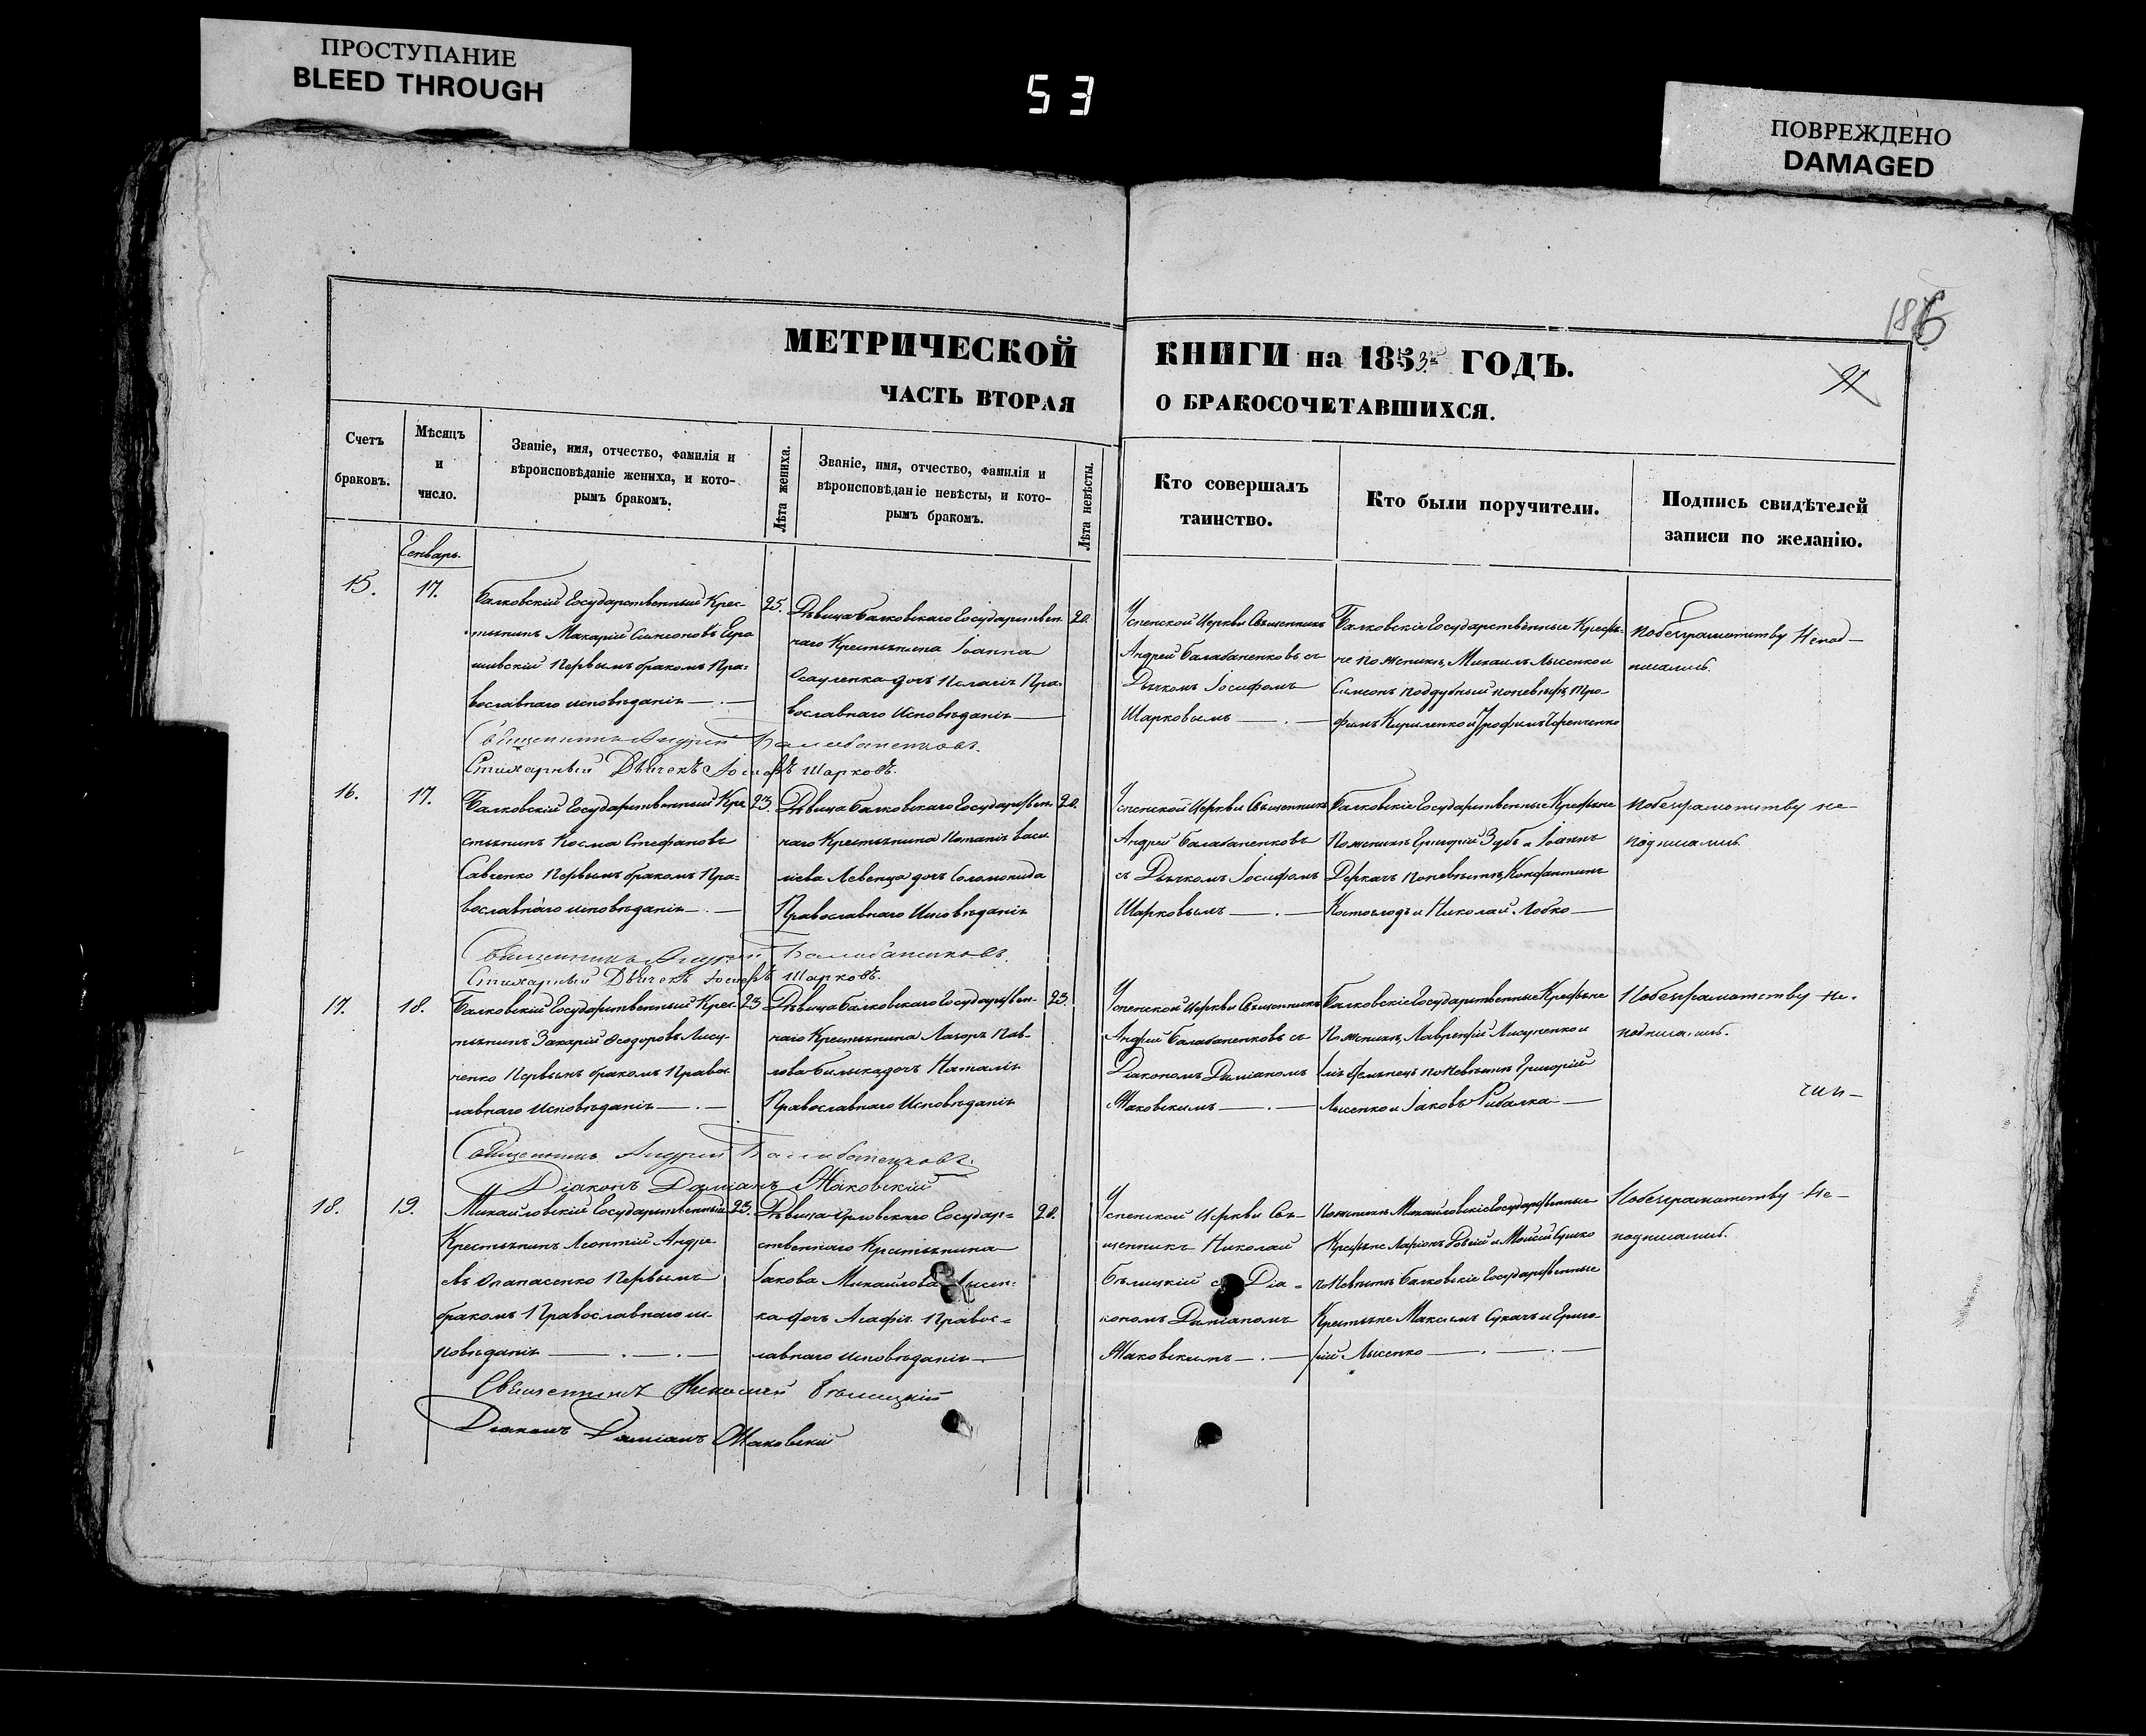 ПРОСТУПАНИЕ
BLEED THROUGH
53
ПОВРЕЖДЕНО
DAMAGED
МЕТРИЧЕСКОЙ КНИГИ на 1853 ГОДЪ.
ЧАСТЬ ВТОРАЯ О БРАКОСОЧЕТАВШИХСЯ.
Счетъ
браковъ.
Мѣсяцъ
и
число.
Званіе, имя, отчество, фамилія и
вѣроисповѣданіе жениха, и кото-
рымъ бракомъ.
Лѣта жениха.
Званіе, имя, отчество, фамилія и
вѣроисповѣданіе невѣсты, и кото-
рымъ бракомъ.
Лѣта невѣсты.
Кто совершалъ
таинство.
Кто были поручители.
Подпись свидѣтелей
записи по желанію.
Генварь.
15.
17.
Балковскій Государственный Крес-
тьянинъ Макарій Симеоновъ
Первымъ бракомъ Пра-
вославнаго исповѣданія
25.
Дѣвица Балковскаго Государствен-
наго Крестьянина Іоанна
Осауленка дочь Пелагія Пра-
вославнаго Исповѣданія
20.
Успенской Церкви Священникъ
Андрей Балабаненковъ съ
Дьячкомъ Іосифомъ
Шарковымъ
Балковскіе Государственные Крестья-
не по женихѣ, Михаилъ Лысенко и
Симеонъ Поддубный по невѣстѣ, Тро-
фимъ Кириленко и Трофимъ
По безграмотству Непод-
писались
Священникъ Андрей Балабаненковъ.
Стихарный Дьячекъ Іосифъ Шарковъ.
16.
17.
Балковскій Государственный Кре-
стьянинъ Косма Стефановъ
Савченко Первымъ бракомъ Пра-
вославнаго исповѣданія
23.
Дѣвица Балковскаго Государствен-
наго Крестьянина Потапія Васи-
ліева Левенца дочь Соломонида
Православнаго Исповѣданія
20.
Успенской Церкви Священникъ
Андрей Балабаненковъ
съ Дьячкомъ Іосифомъ
Шарковымъ
Балковскіе Государственные Крестьяне
По женихѣ Григорій Зубъ и Іоаннъ
Деркачъ по невѣстѣ, Константинъ
Костоглодъ и Николай Лобко
По безграмотству не-
подписались
Священникъ Андрей Балабаненковъ.
Стихарный Дьячекъ Іосифъ Шарковъ.
17.
18.
Балковскій Государственный Крес-
тьянинъ Захарій Ѳеодоровъ Лису-
ненко Первымъ бракомъ Правос-
лавнаго Исповѣданія
23
Дѣвица Балковскаго Государствен-
наго Крестьянина Лазоря Пав-
лова Билыка дочь Наталія
Православнаго Исповѣданія
23.
Успенской Церкви Священникъ
Андрей Балабаненковъ съ
Діакономъ Даміаномъ
Жаковскимъ
Балковскіе Государственные Крестьяне
По женихѣ, Лаврентій Лисуненко и
по невѣстѣ Григорій
Лысенко и Іаковъ Рибалка
По безграмотству не-
подписались.
Священникъ Андрей Балабаненковъ.
Діаконъ Даміанъ Жаковскій
18.
19.
Михайловскій Государственный
Крестьянинъ Леонтій Андре-
евъ Опанасенко Первымъ
бракомъ Православнаго ис-
повѣданія
23.
Дѣвица Государ-
ственнаго Крестьянина
Іакова Михайлова Лисен-
ка дочь Агафія Правос-
лавнаго исповѣданія
20.
Успенской Церкви Свя-
щенникъ Николай
Бѣлицкій съ Діа-
кономъ Даміаномъ
Жаковскимъ
По женихѣ Михайловскіе Государственные
Крестьяне Ларіонъ и Моисей
по невѣстѣ Балковскіе Государственные
Крестьяне Максимъ Сукачъ и Григо-
рій Лысенко
По безграмотству Не-
подписались.
Священникъ Николай Бѣлицкій
Діаконъ Даміанъ Жаковскій